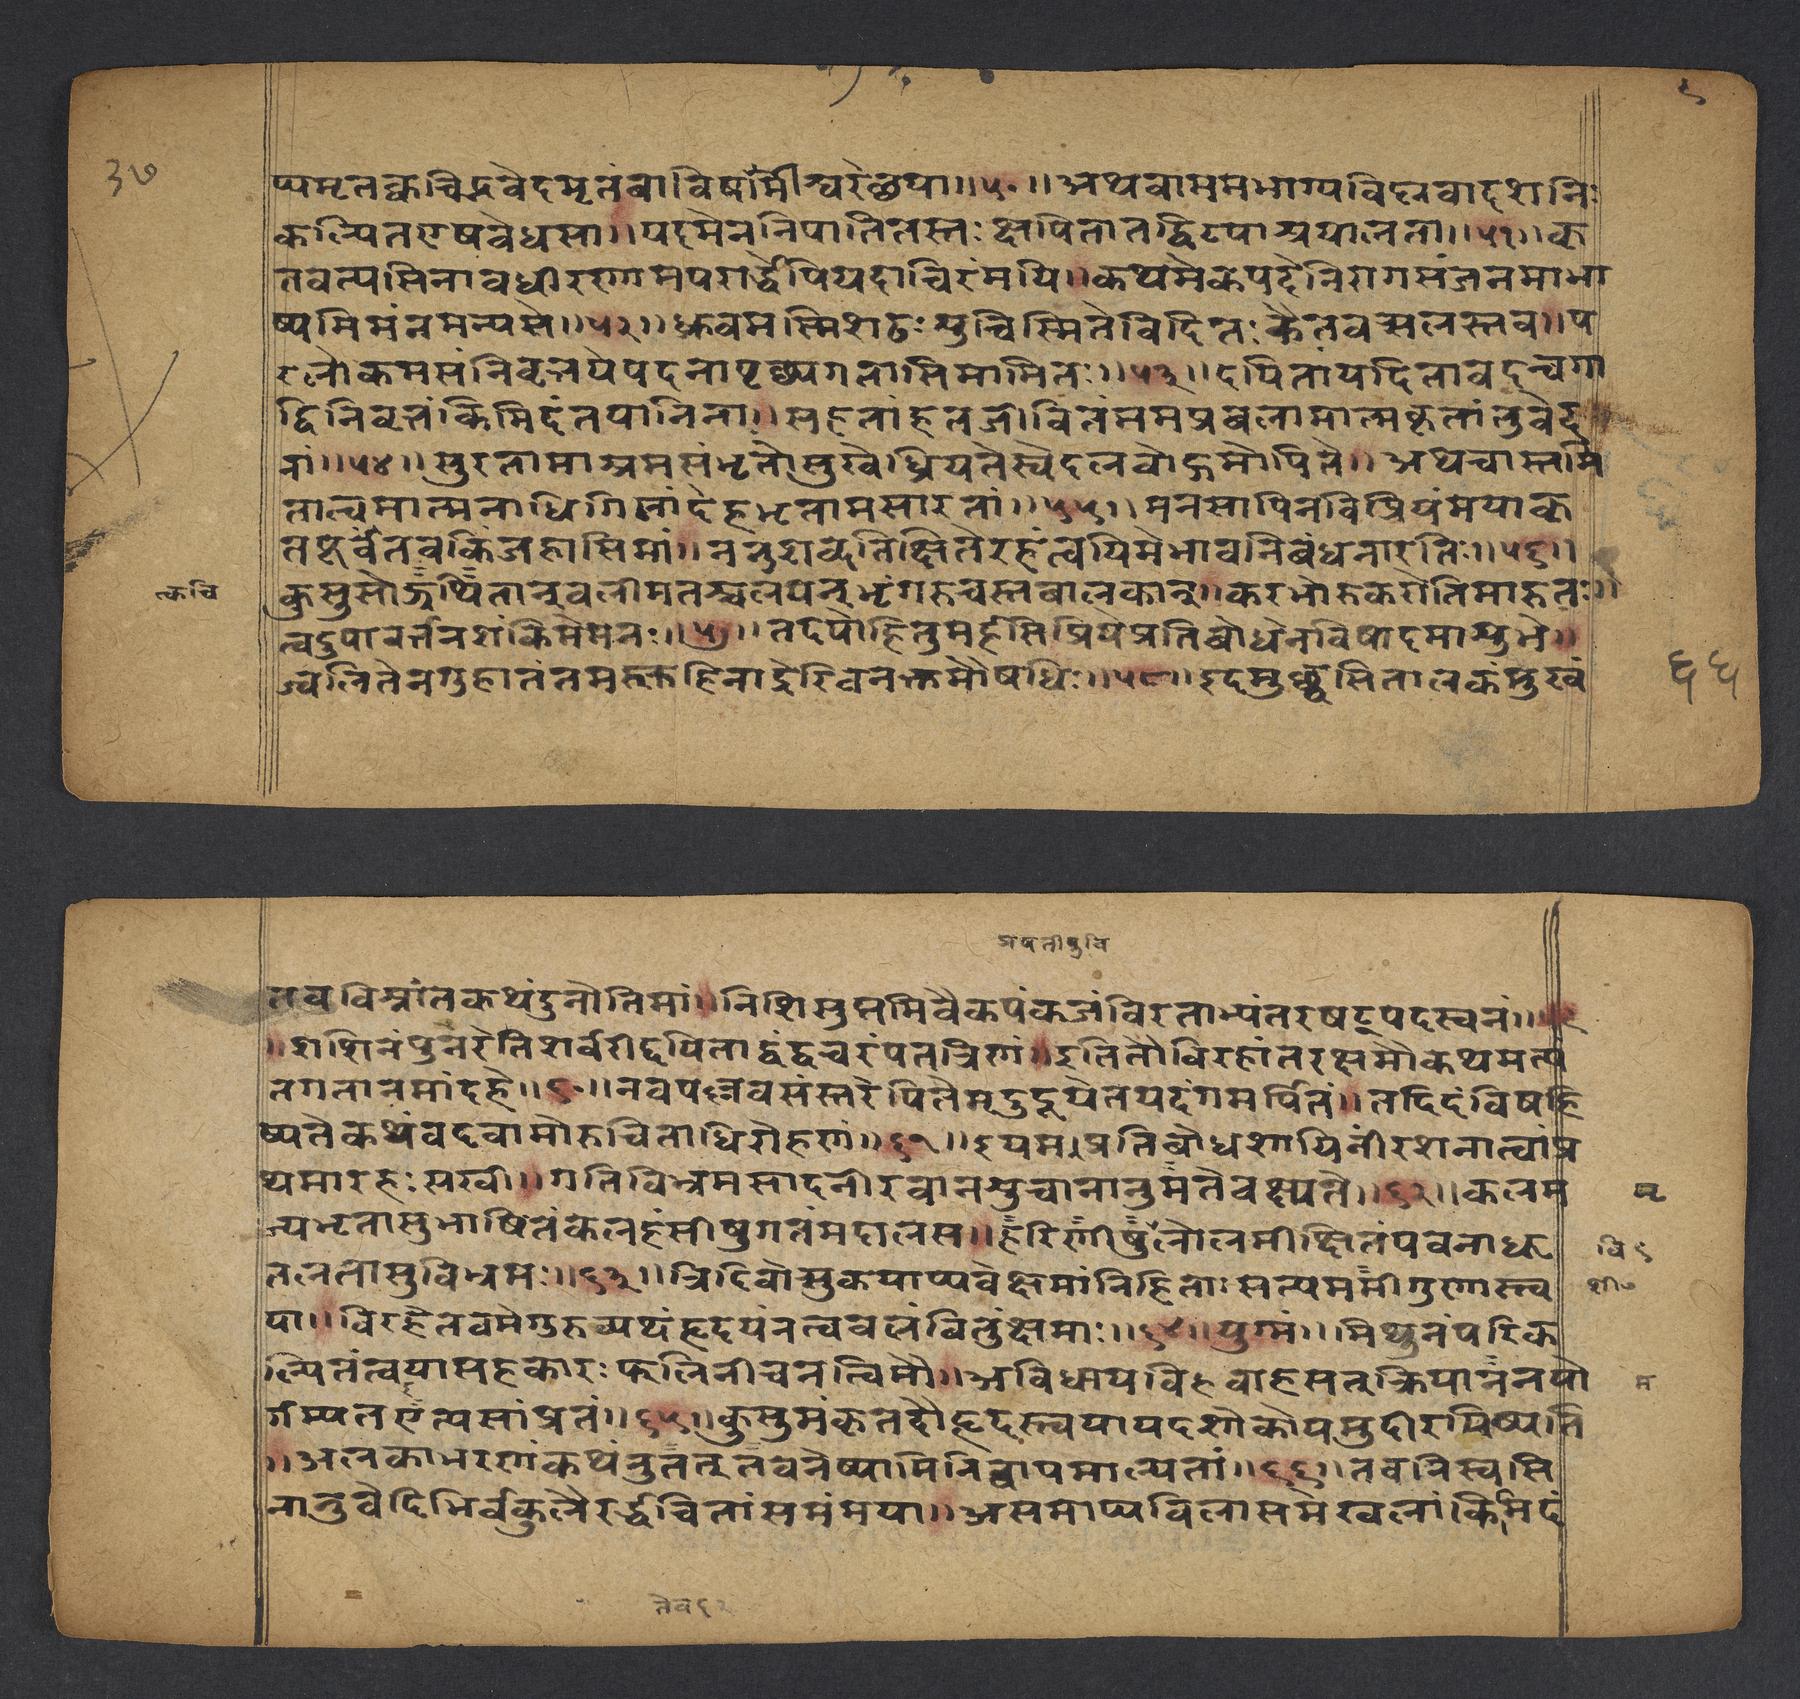 ३७
प्यमृतक्वचिद्भवेदमृतंवाविषमीश्वरेछया॥५०॥अथवाममभाग्यविप्लवादशनिः
कल्पितएषवेधसा॥यदनेननिपातितस्तः क्षपितातद्विटपाश्रयालता॥५१॥कृ
तवत्यसिनावधीरणामपराद्धेपियदाचिरंमयि॥कथमेकपदेनिरागसंजनमाभा
ष्यमिमंनमन्यसे॥५२॥ध्रुवमस्मिशठः शुचिस्मितेविदितः कैतवत्सलस्तव॥प
रलोकमसंनिवृत्तयेयदनापृछ्यगतासिमामितः॥५३॥दयितांयदितावदन्वगा
द्विनिवृत्तंकिमिदंतयाविना॥सहतांहतजीवितंममप्रबलामात्मकृतांतुवेद
नां॥५४॥सुरतामाश्रमसंभृतोमुखेध्रियतेस्वेदलवोद्गमोपिते॥अथचास्तमि
तात्वमात्मनाधिगिमांदेहभृतामसारतां॥५५॥मनसापिनविप्रियंमयाकृ
तपूर्वंतवकिंजहासिमां॥ननुशब्दतिक्षितेरहंत्वयिमेभावनिबंधनारतिः॥५६॥
त्कचि
कुसुमोत्ग्रथितान्वलीमतश्चलयन्भृंगरुचस्तवालकान्॥करभोरुकरोतिमारुतः॥
त्वदुपावर्त्तनशंकिमेमनः॥५७॥तदपोहितुमर्हसिप्रियेप्रतिबोधेनविषादमाशुमे॥
ज्वलितेनगुहागतंतमस्तुहिनाद्रेरिवनक्तमोषधिः॥५८॥इदमुछ्वसितालकंमुखं
६६
तवविश्रांतकथंदुनोतिमां॥निशिसुप्तमिवैकपंकजंविरताभ्यंतरषट्पदस्वनं॥५९
॥शशिनंपुनरेतिशर्वरीदयिताद्वंद्वचरंपतत्रिणं॥इतितौविरहांतरक्षमौकथमत्यं
तगतानमांदहे॥६०॥नवपल्लवसंस्तरेपितेमृदुदूयेतयदंगमर्पितं॥तदिदंविषहि
ष्यतेकथंवदवामोरुचिताधिरोहणं॥६१॥इयमप्रतिबोधशायिनींरशनात्वांप्र
थमारहः सखी॥गतिविभ्रमसादनीरवानशुचानानुमृतेवलक्ष्यते॥६२॥कलम
न्यभृतासुभाषितंकलहंसीषुगतंमदालस॥हरिणीषुलोलमीक्षितंपवनाधू
तलतासुविभ्रमः॥६३॥त्रिदिवोत्सुकयाप्यवेक्षमांनिहिताः सत्यममीगुणास्त्व
या॥विरहेतवमेगुरुव्यथंहृदयंनत्ववलंवितुंक्षमाः॥६४॥युग्मं॥मिथुनंपरिक
ल्पितंत्वयासहकारः फलिनीचनन्विमौ॥अविधायविवाहसत्क्रियामनयो
र्गम्यतइत्यसांप्रतं॥६५॥कुसुमंकृतदोहृदस्त्वयायदशोकोयमुदीरयिष्यति
॥अलकाभरणंकथंनुतत्तवनेष्यामिनिवापमाल्यतां॥६६॥तवनिश्वसि
तानुवेदिभिर्वकुलैरर्द्धचितांसमंमया॥असमाप्यविलासमेखलांकिमिदं